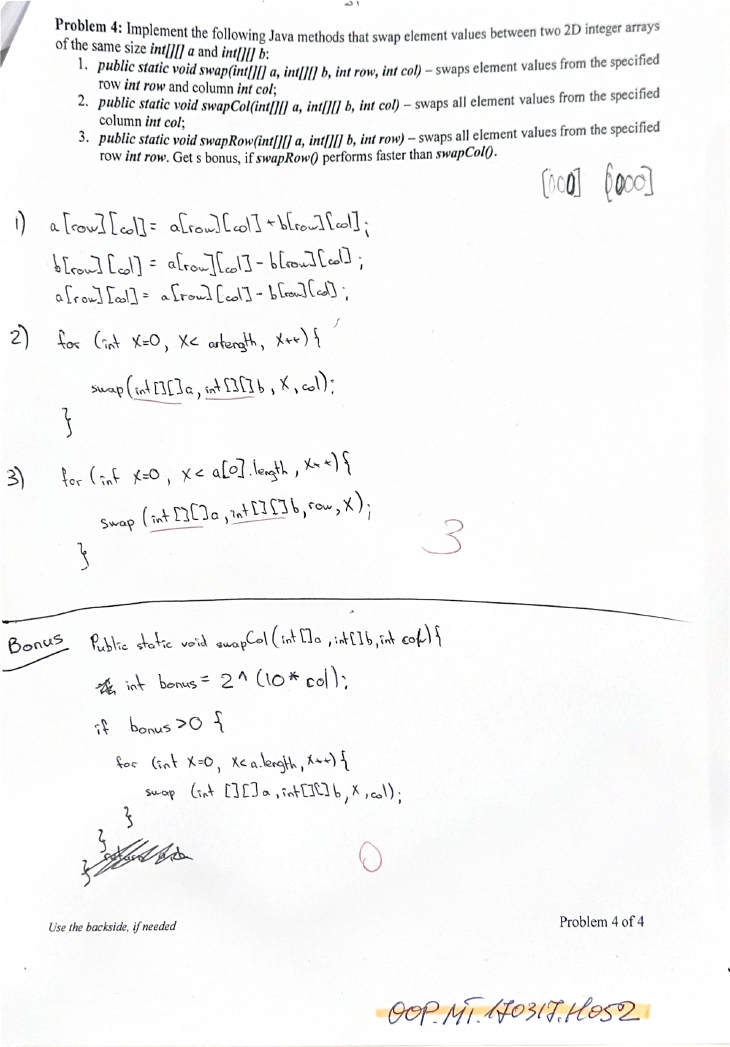 Problem 4: Implement the following Java methods that swap element values between two 2D integer arrays
of the same size int[][] a and int[][] b:
1. public static void swap(int[][] a, int[][] b, int row, int col) – swaps element values from the specified
row int row and column int col;
2. public static void swapCol(int[][] a, int[][] b, int col) – swaps all element values from the specified
column int col;
3. public static void swapRow(int[][] a, int[][] b, int row) – swaps all element values from the specified
row int row. Get s bonus, if swapRow() performs faster than swapCol().
[000] [000]
1) a[row][col] = a[row][col] + b[row][col];
b[row][col] = a[row][col] - b[row][col];
a[row][col] = a[row][col] - b[row][col];
2) for (int x=0, x< a.length, x++) {
swap(int[][]a, int[][]b, x, col);
}
3) for (int x=0, x< a[0].length, x++) {
swap (int[][]a, int[][]b, row, x);
}
3
Bonus Public static void swapCol (int[]a, int[]b, int col) {
int bonus = 2^(10*col);
if bonus >0 {
for (int x=0, x<a.length, x++) {
swap (int [][]a, int[][]b, x, col);
}
}
}
0
Use the backside, if needed
Problem 4 of 4
OOP.MT.170317.H052